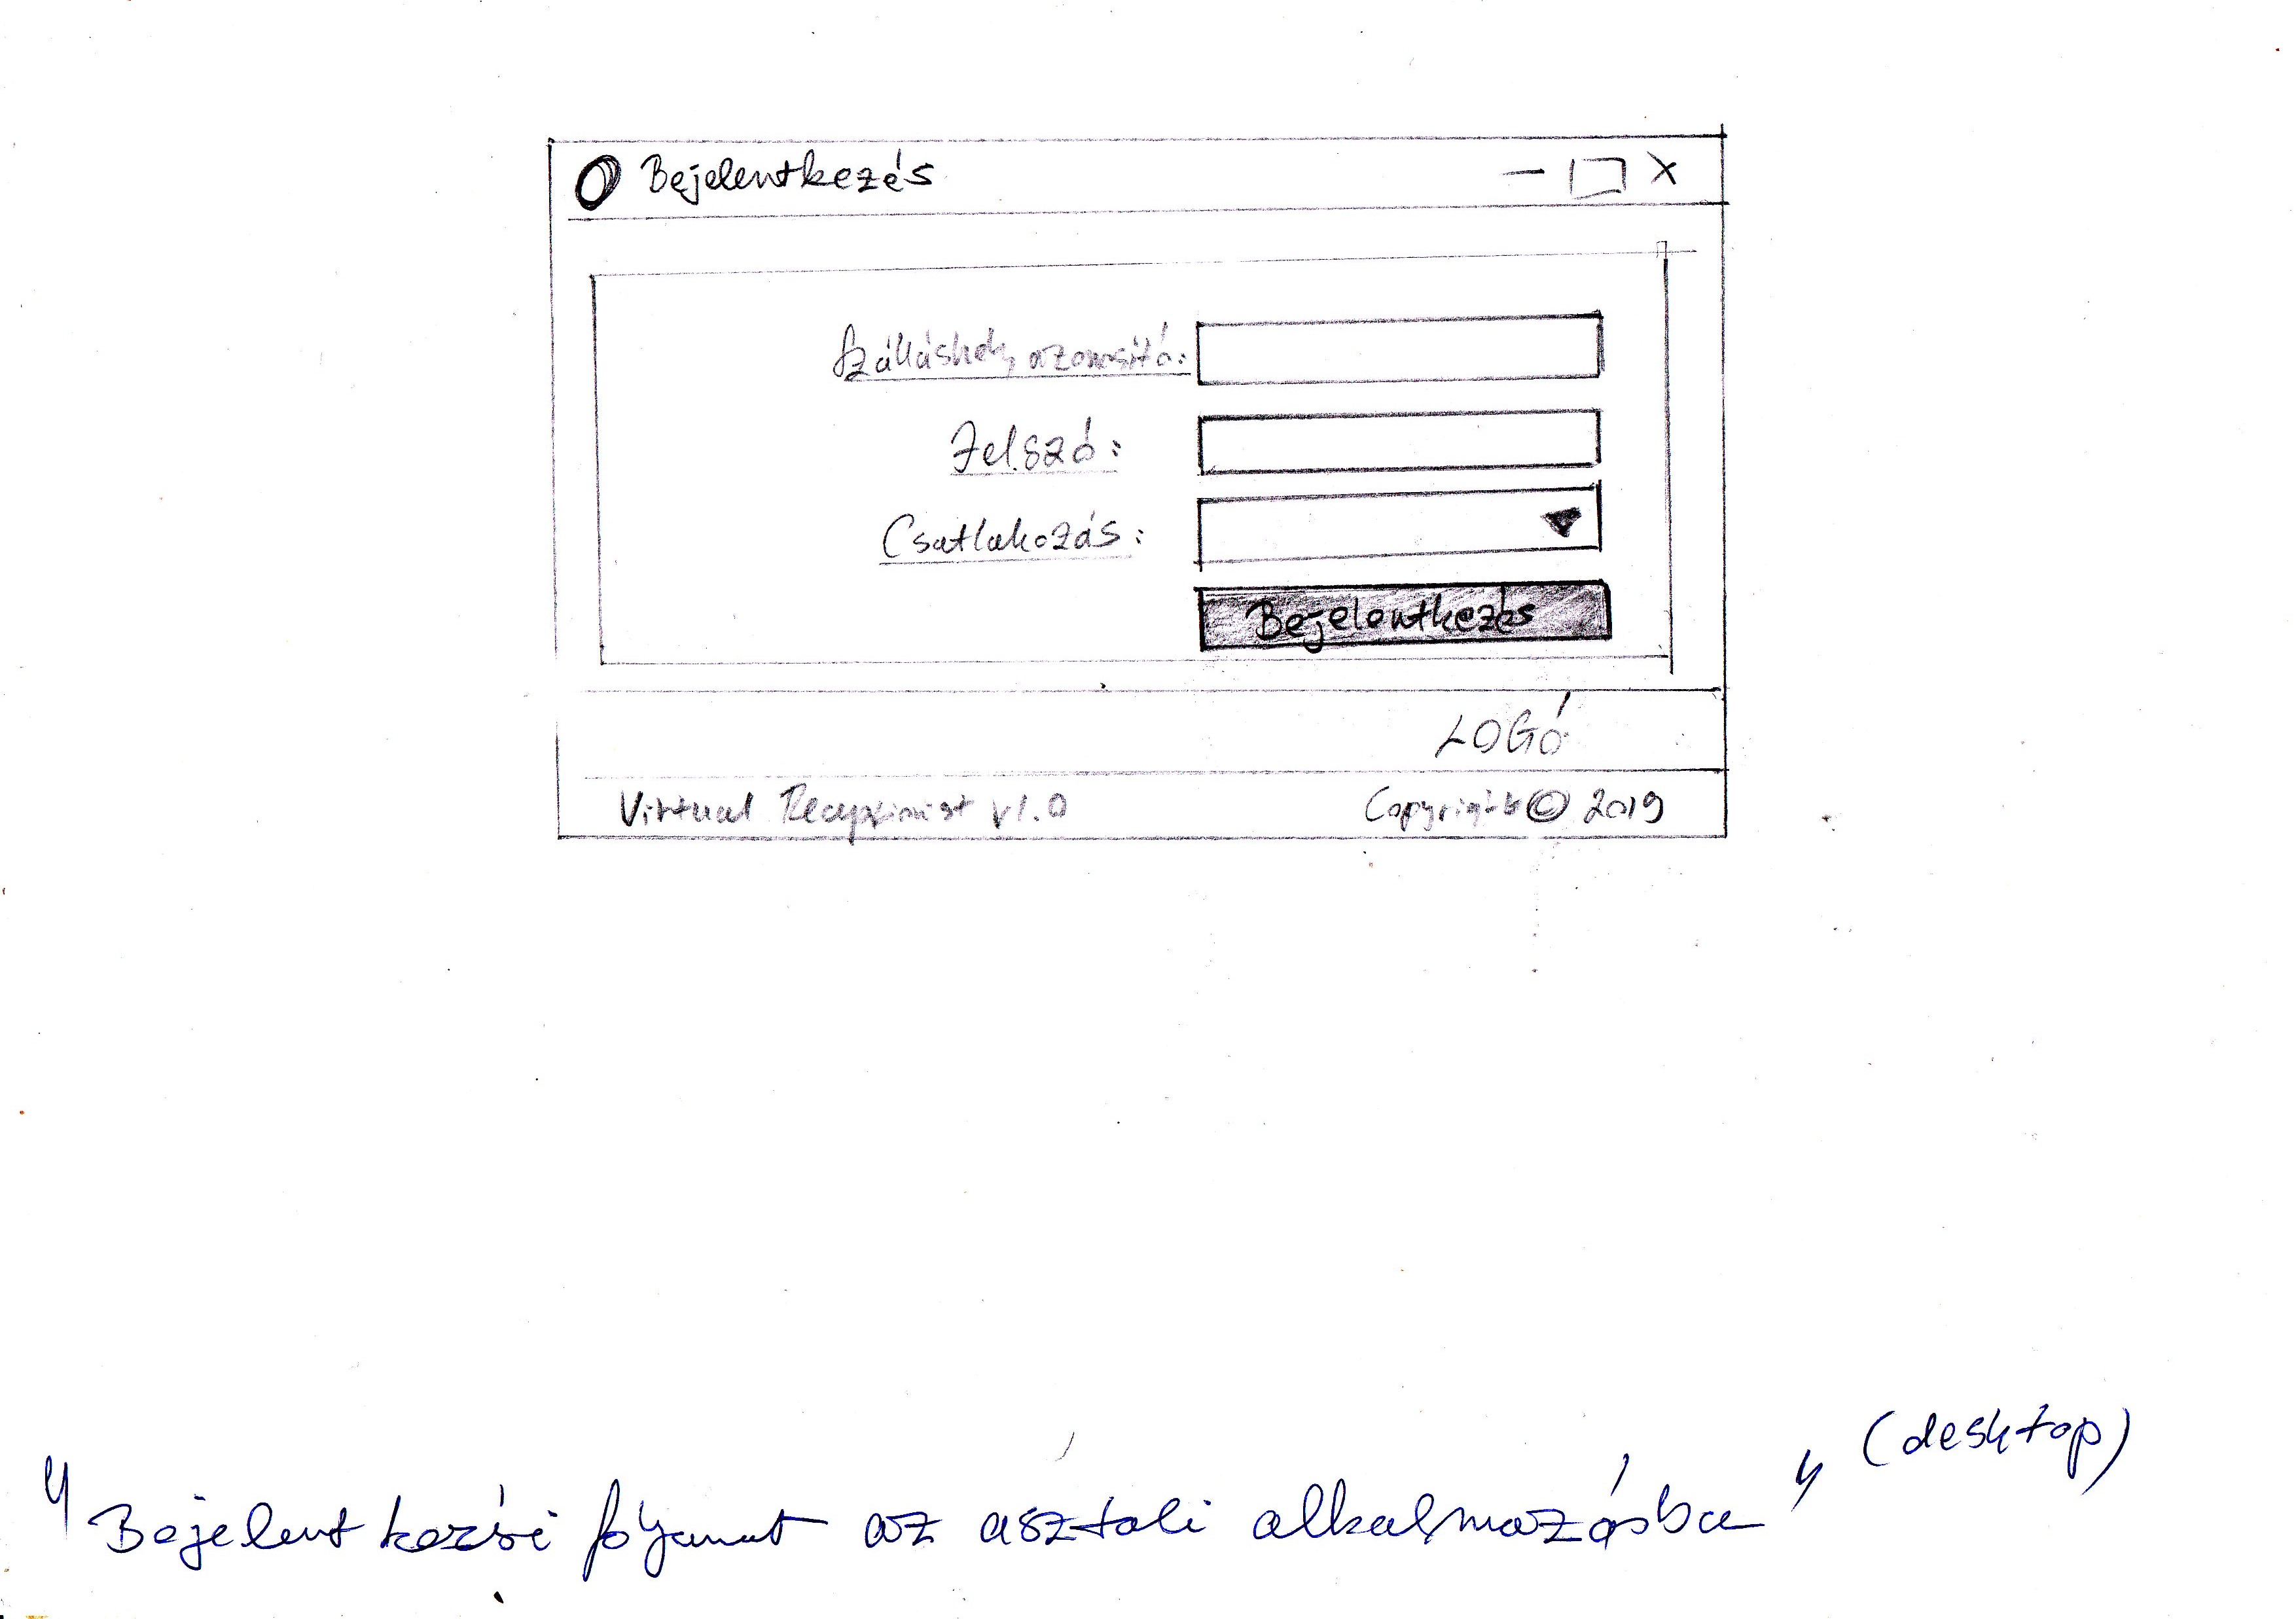 Bejelentkezés
Szálláshely azonosító:
Jelszó:
Csatlakozás:
Bejelentkezés
LOGÓ
Virtual Receptionist v1.0 Copyright © 2019
(desktop)
"Bejelentkezési folyamat az asztali alkalmazásba"